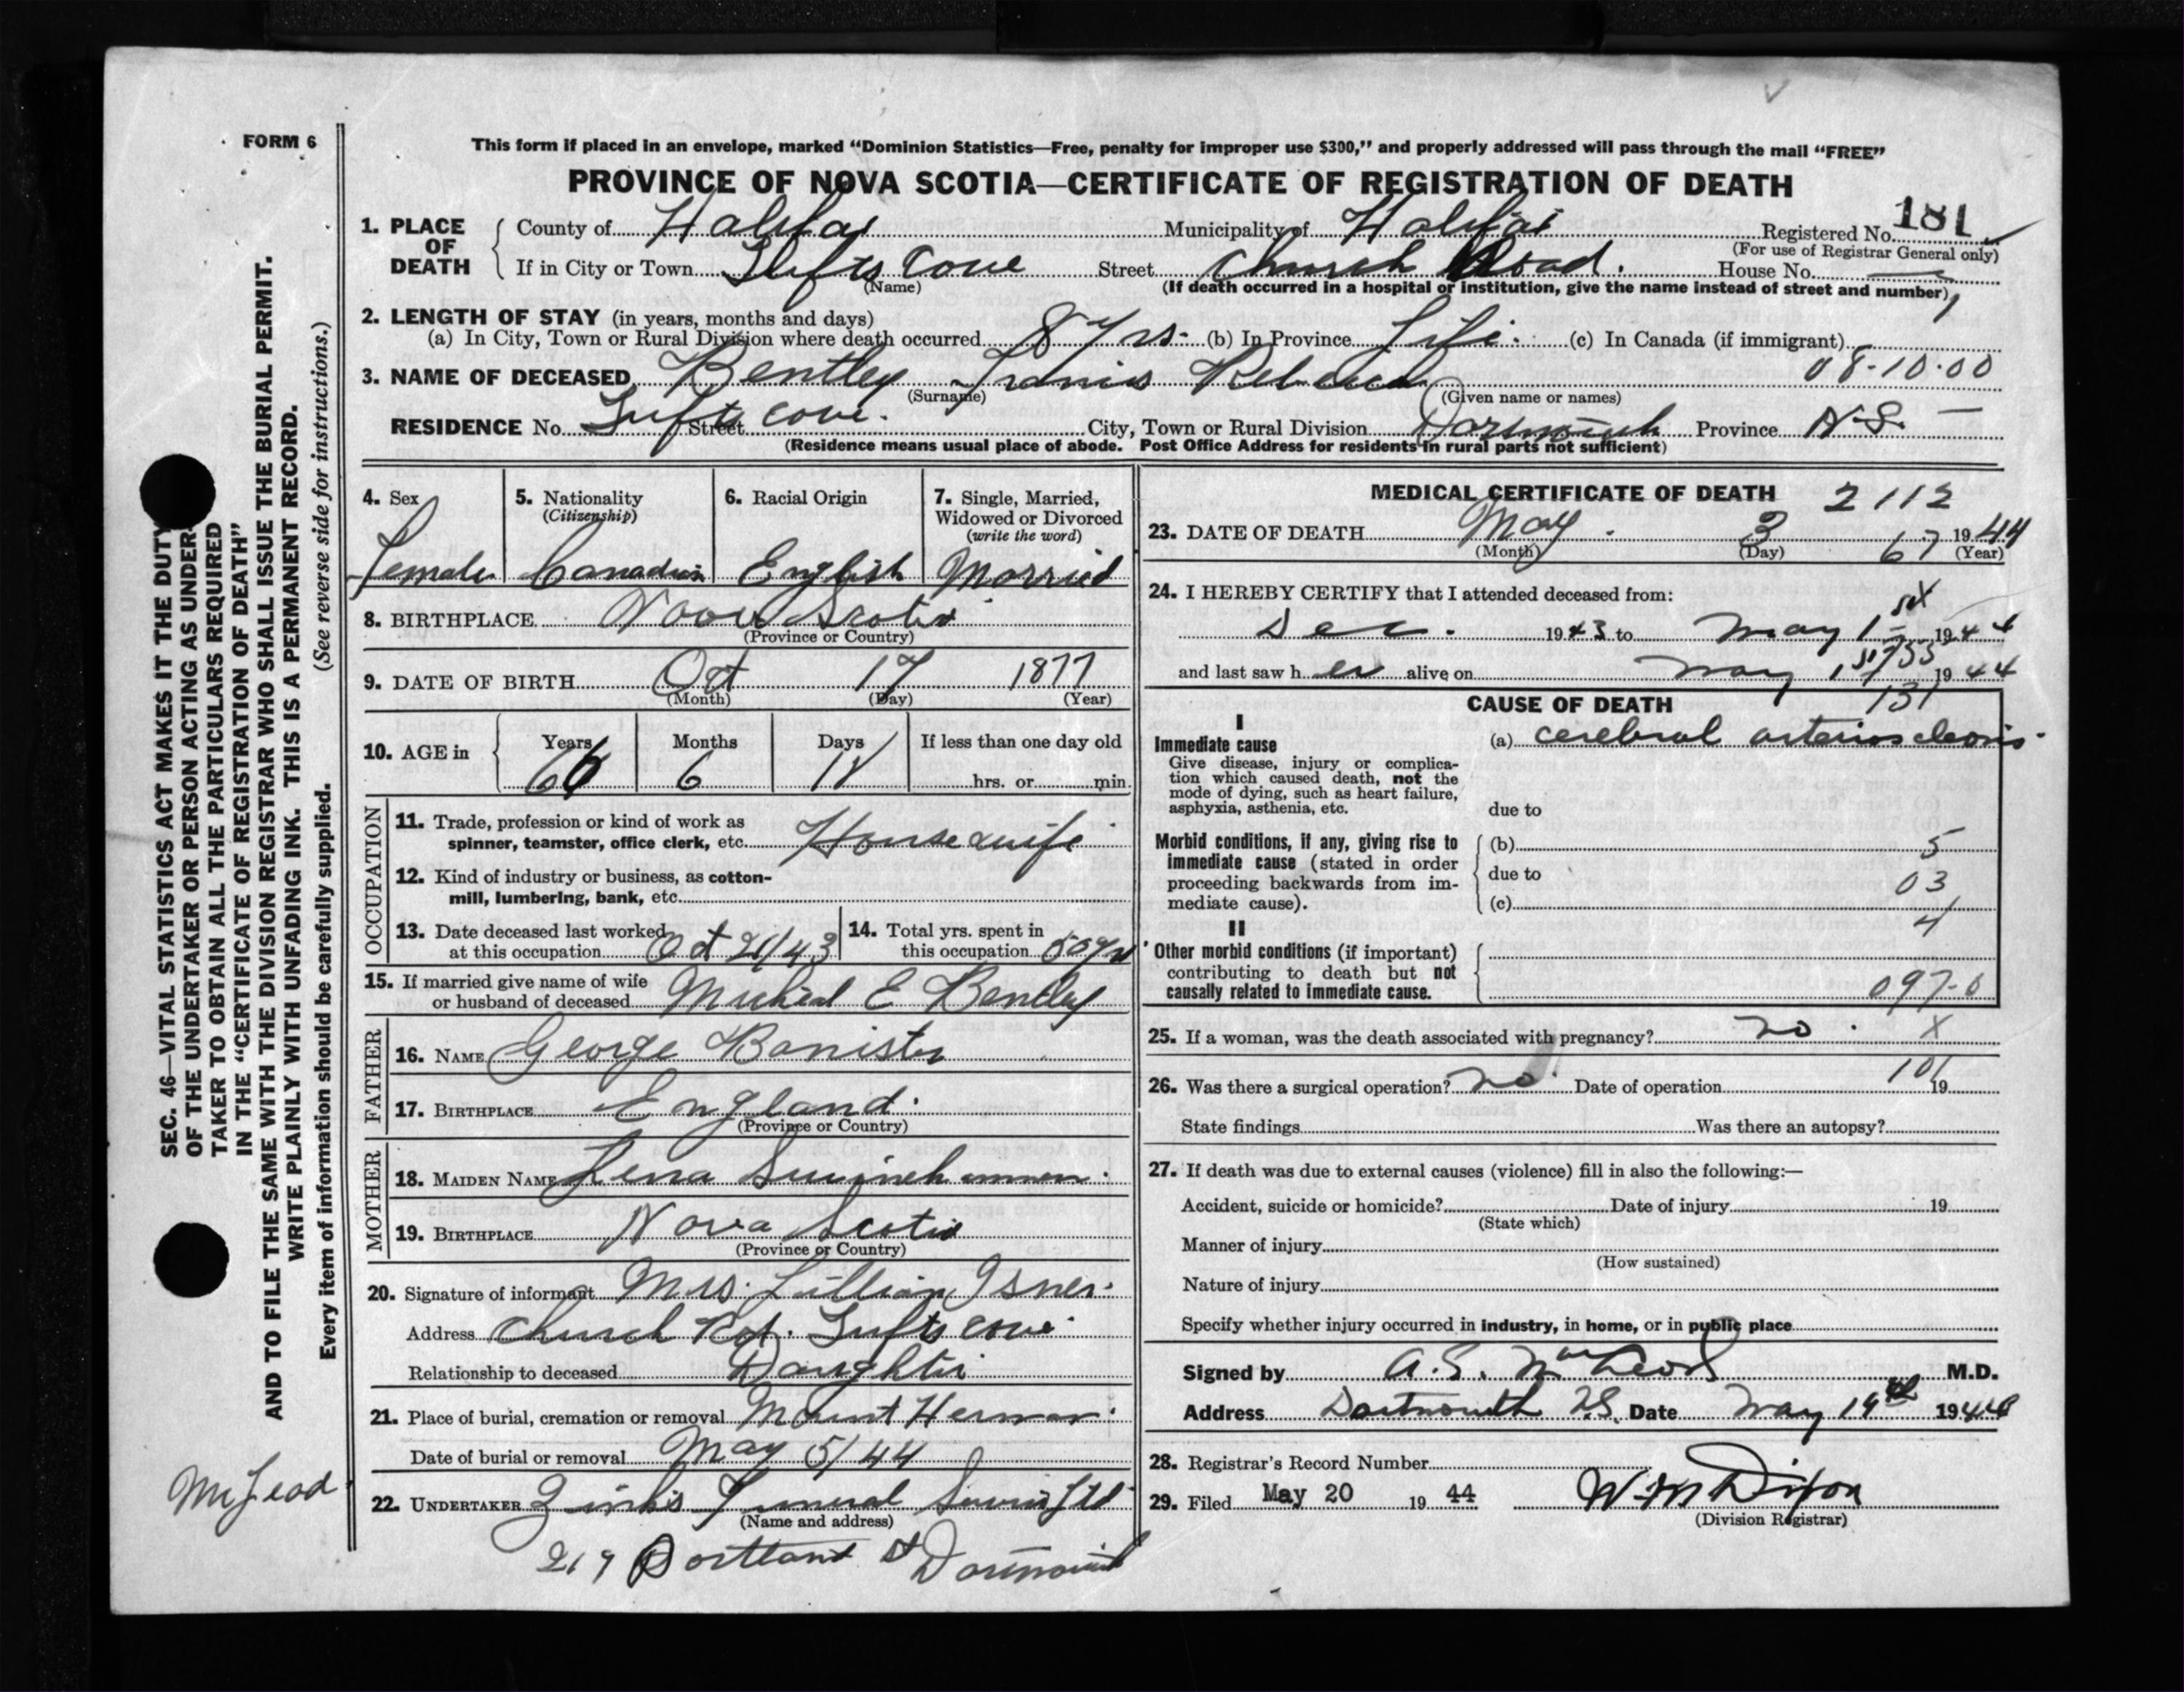 FORM 6
This form if placed in an envelope, marked “Dominion Statistics—Free, penalty for improper use $300,” and properly addressed will pass through the mail “FREE”
PROVINCE OF NOVA SCOTIA—CERTIFICATE OF REGISTRATION OF DEATH
1. PLACE OF DEATH County of Halifax Municipality of Halifax Registered No. 181
(For use of Registrar General only)
If in City or Town Tufts Cove Street Church Road. House No. —
(Name)
(If death occurred in a hospital or institution, give the name instead of street and number)
2. LENGTH OF STAY (in years, months and days)
(a) In City, Town or Rural Division where death occurred 8 yrs. (b) In Province Life. (c) In Canada (if immigrant)
3. NAME OF DECEASED Bentley Francis Rebecca 08-10-00
(Surname) (Given name or names)
RESIDENCE No. Tufts Cove. Street City, Town or Rural Division Dartmouth Province N.S. —
(Residence means usual place of abode. Post Office Address for residents in rural parts not sufficient)
4. Sex 5. Nationality 6. Racial Origin 7. Single, Married,
(Citizenship) Widowed or Divorced
(write the word)
Female Canadian English Married
8. BIRTHPLACE Nova Scotia
(Province or Country)
9. DATE OF BIRTH Oct 17 1877
(Month) (Day) (Year)
10. AGE in Years Months Days If less than one day old
66 6 hrs. or min.
OCCUPATION
11. Trade, profession or kind of work as
spinner, teamster, office clerk, etc. Housewife
12. Kind of industry or business, as cotton-
mill, lumbering, bank, etc.
13. Date deceased last worked 14. Total yrs. spent in
at this occupation Oct /43 this occupation 50 yrs
15. If married give name of wife
or husband of deceased Micheal E Bentley
FATHER
16. NAME George Banister
17. BIRTHPLACE England.
(Province or Country)
MOTHER
18. MAIDEN NAME Lena
19. BIRTHPLACE Nova Scotia
(Province or Country)
20. Signature of informant Mrs. Lillian Isner.
Address Church Rd. Tufts Cove.
Relationship to deceased Daughter
21. Place of burial, cremation or removal Mount Herman.
Date of burial or removal May 5/44
22. UNDERTAKER Zink's Funeral Service Ltd
(Name and address)
217 Portland St Dartmouth
MEDICAL CERTIFICATE OF DEATH 2112
23. DATE OF DEATH May 3 1944
(Month) (Day) 67 (Year)
24. I HEREBY CERTIFY that I attended deceased from:
Dec. 1943 to May 1st 1944
and last saw h er alive on May 1st 1944
CAUSE OF DEATH 131
I
Immediate cause (a) cerebral arteriosclerosis.
Give disease, injury or complica-
tion which caused death, not the
mode of dying, such as heart failure,
asphyxia, asthenia, etc. due to
Morbid conditions, if any, giving rise to (b) 5
immediate cause (stated in order due to
proceeding backwards from im- 03
mediate cause). (c)
II 4
Other morbid conditions (if important)
contributing to death but not
causally related to immediate cause. 097-0
25. If a woman, was the death associated with pregnancy? no. X
26. Was there a surgical operation? no Date of operation 101 19
State findings Was there an autopsy?
27. If death was due to external causes (violence) fill in also the following:—
Accident, suicide or homicide? Date of injury 19
(State which)
Manner of injury
(How sustained)
Nature of injury
Specify whether injury occurred in industry, in home, or in public place
Signed by A.S. MacLeod M.D.
Address Dartmouth N.S. Date May 19th 1944
28. Registrar's Record Number
29. Filed May 20 19 44 W. M Dixon
(Division Registrar)
SEC. 46—VITAL STATISTICS ACT MAKES IT THE DUTY
OF THE UNDERTAKER OR PERSON ACTING AS UNDER-
TAKER TO OBTAIN ALL THE PARTICULARS REQUIRED
IN THE “CERTIFICATE OF REGISTRATION OF DEATH”
AND TO FILE THE SAME WITH THE DIVISION REGISTRAR WHO SHALL ISSUE THE BURIAL PERMIT.
WRITE PLAINLY WITH UNFADING INK. THIS IS A PERMANENT RECORD.
Every item of information should be carefully supplied. (See reverse side for instructions.)
McLeod